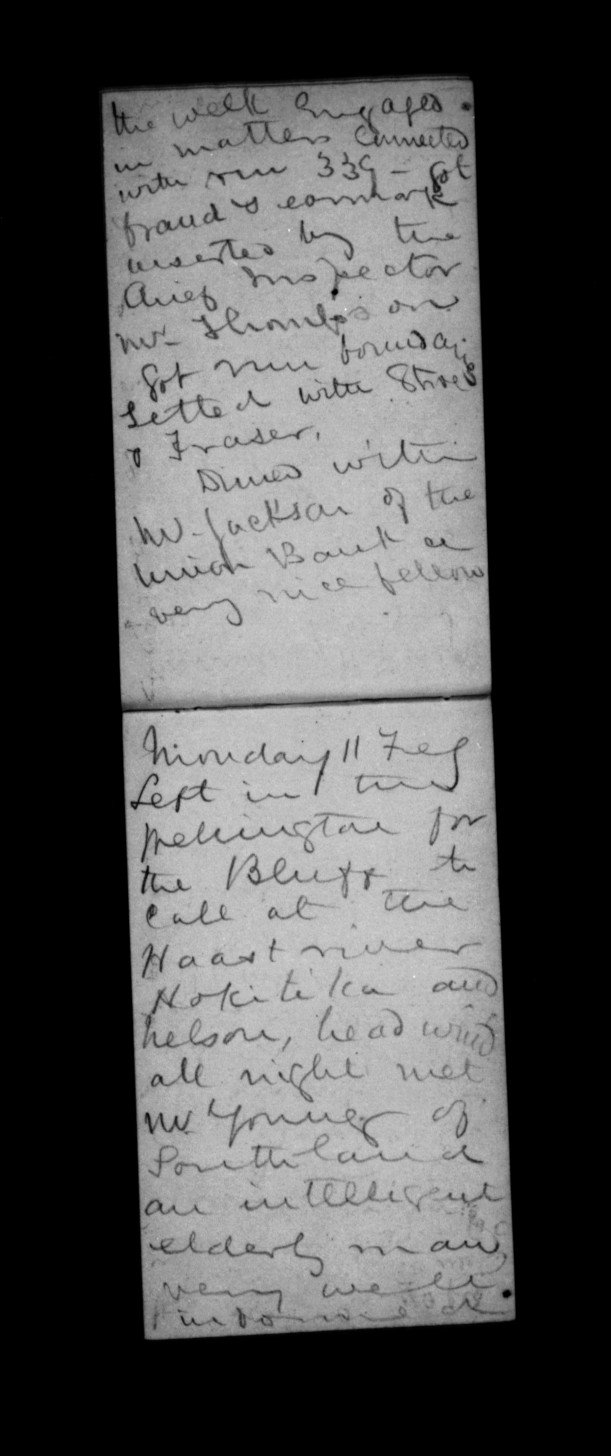 the week Engaged
in matters Connected
with run 339 - got
fraud & earmark
inserted by the
Chief Inspector
Mr. Thompson
Got run boundary
settled with
& Fraser.
Dined with
Mr. Jackson of the
Union Bank a
very nice fellow
Monday 11 Feb
Left in the
Wellington for
the Bluff to
call at the
Haast river
Hokitika and
Nelson, head wind
all night met
Mr. Young of
Southland
an intelligent
elderly man,
very well
informed